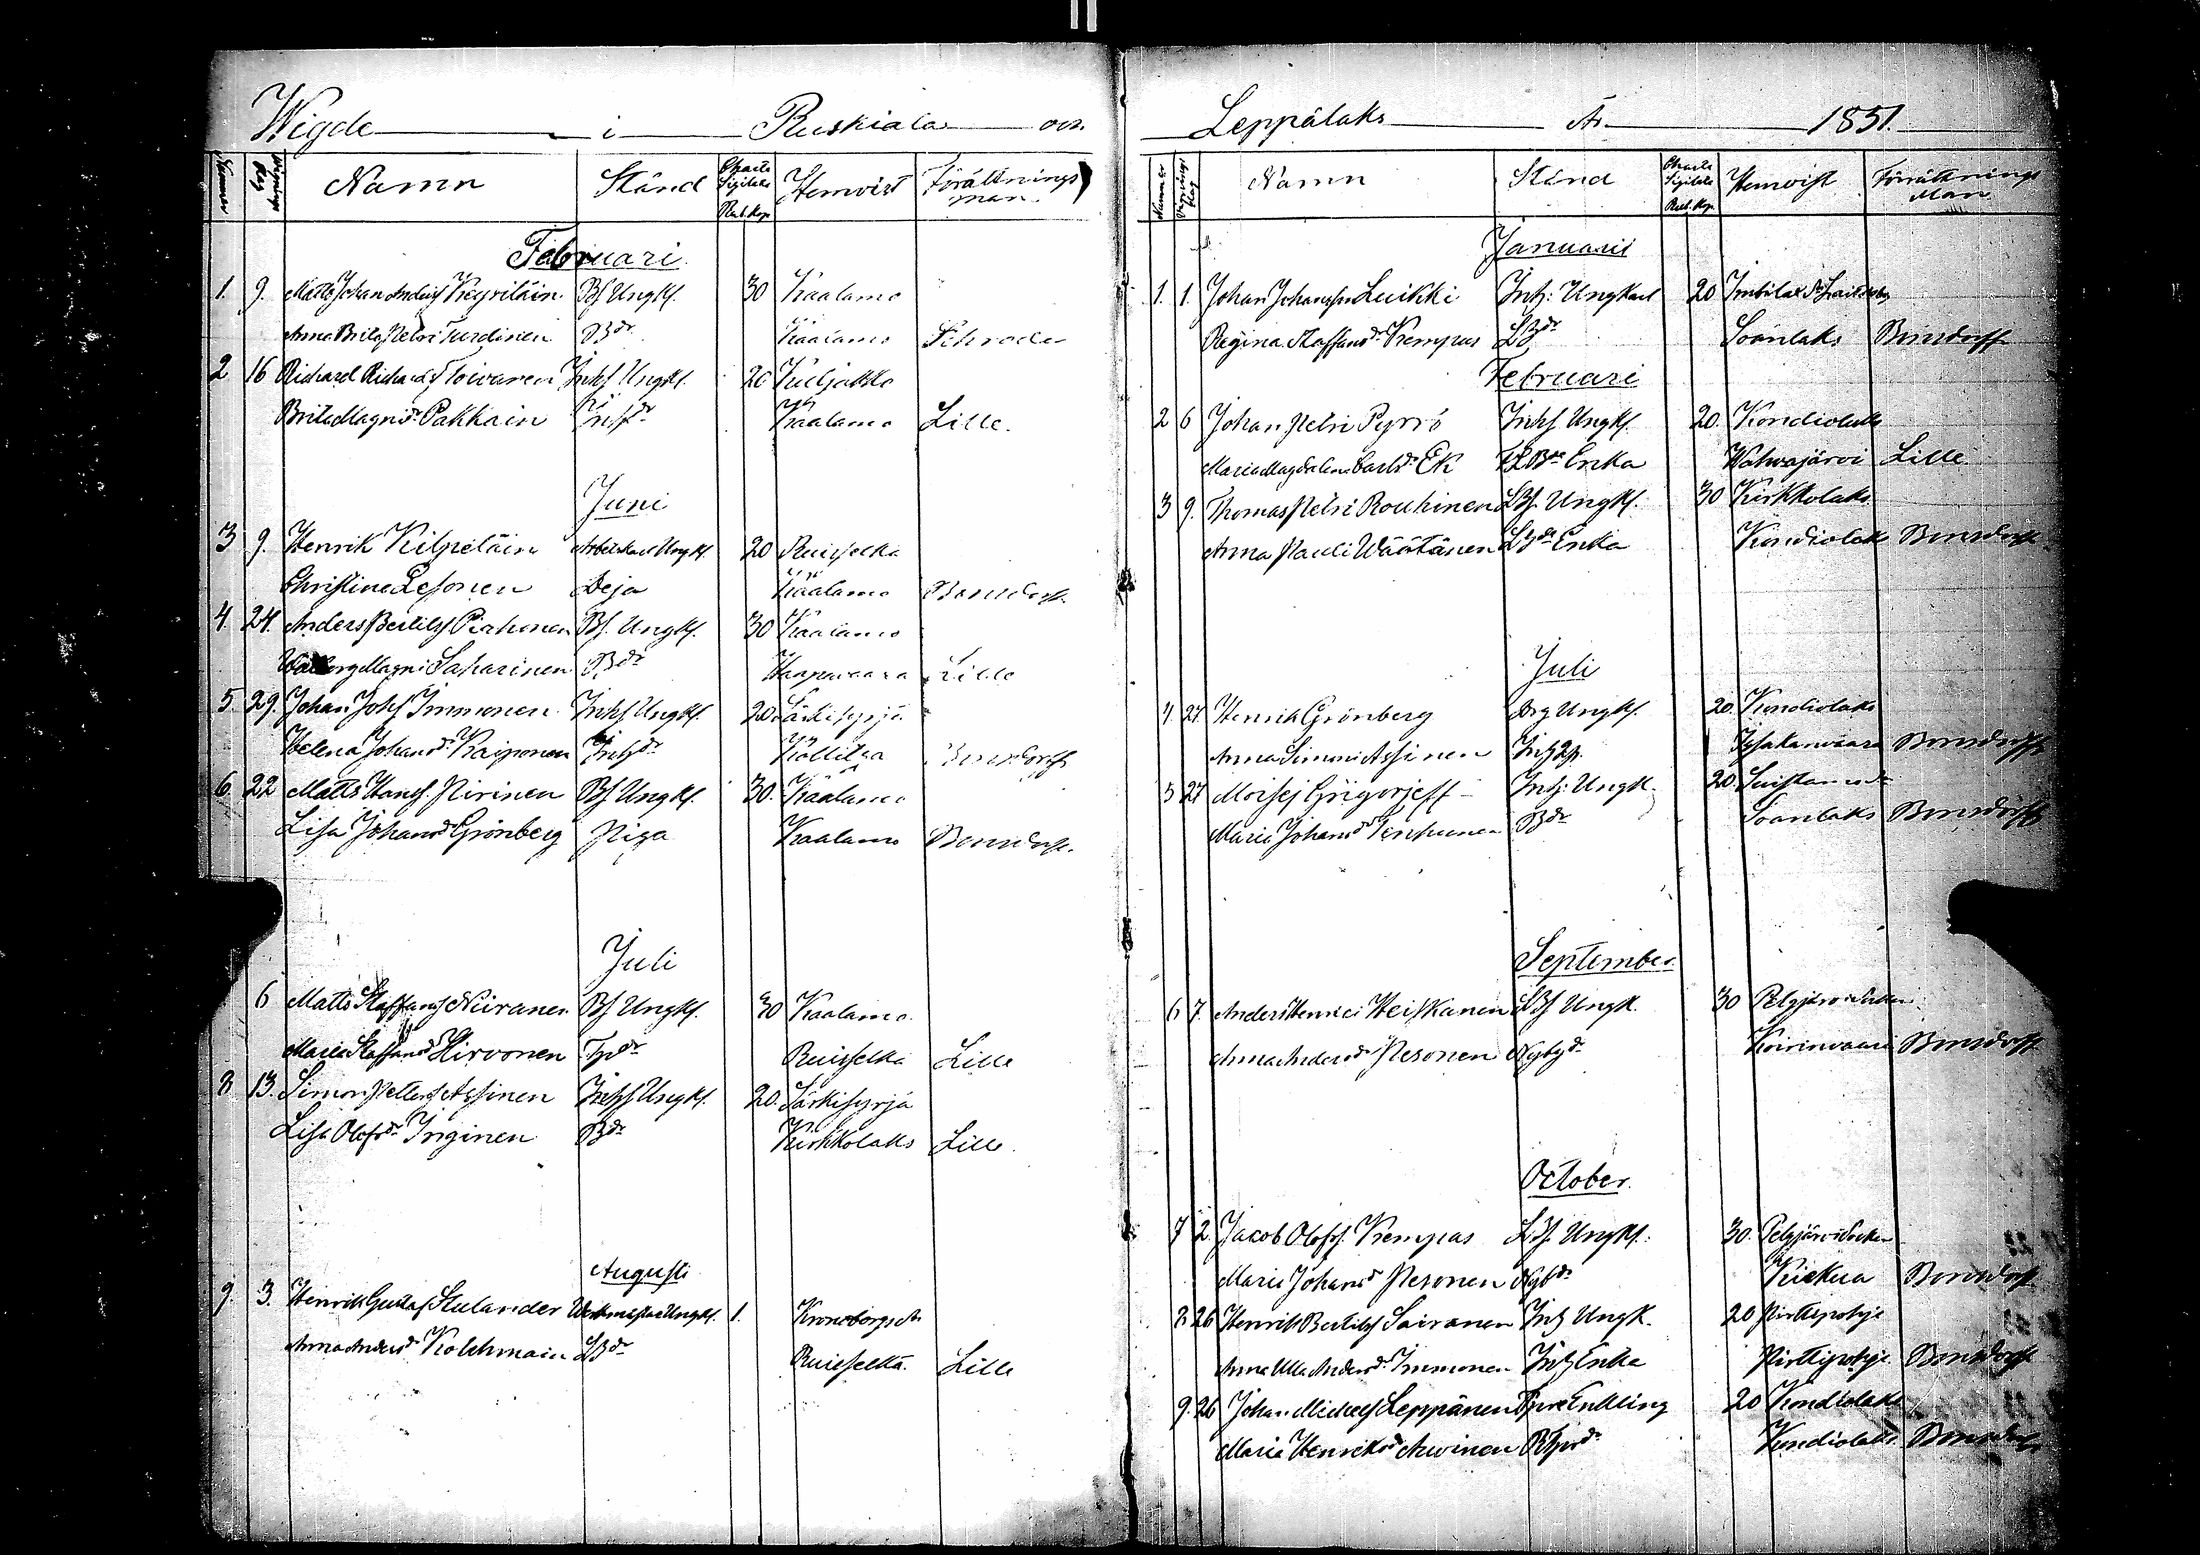 Wigde i Ruskiala och
Nummer Vignings dag Namn Stånd Charta Sigillata Rub. Kop. Hemvist Förättnings man
Februari
1. 9. Matts Johan Anderss Keyriläin Bs Ungk. 30 Kaalamo
Anna Brita Petri Turdinen Bdr Kaalamo Schroder
2 16 Richard Richardss Toivanen Inhs Ungk. 20 Kuljakko
Brita Magnid. Pakkain Inhdr Kaalamo Lille.
Juni
3 9. Henrik Kilpeläin Arbetskarl Ungk. 20 Ruisselkä
Christina Lesonen Deja Kaalamo Bonsdorff
4. 24. Anders Bertils Pirhonen Bs. Ungk. 30 Kaalamo
Magni Saharinen Bdr Haapavaara Lille
5. 29. Johan Johs Immonen Inhs Ungk. 20 Särkisyrjä
Helena Johansdr Kaiponen Inhdr Bonsdorff
6. 22 Matts Hanss. Piirinen Bs Ungk. 30. Kaalamo
Lisa Johansdr Grönberg Piga Kaalamo Bonsdorff.
Juli
6 Matts Staffans Niiranen Bs Ungk. 30 Kaalamo
Maria Staffansdr Hirvonen Tpdr Ruisselkä Lille
8 13. Simon Petters Assinen Inhs Ungk. 20. Särkisyrjä
Lisa Olofsdr Inginen Bdr Kirkkolaks Lille.
Augusti
9. 3. Henrik Gustaf Stulander Ungk. 1. Kronoborgs
Anna Andersdr Kolehmain LBdr Ruisselkä. Lille
Leppälaks År 1851.
Nummer Vignings dag Namn Stånd Charta Sigillata Rub. Kop. Hemvist Förrättnings Man
Januarii
1. 1. Johan Johansson Luikki Inh: Ungkarl 20 Imbilax
Regina Staffansdr Kempas LBdr Soanlaks Bonsdorff
Februari
2 6 Johan Petri Pyrrö Inhs Ungk. 20. Kondiolaks
Maria Magdalena Carlsdr Ek Enka Wahvajärvi Lille.
3 9. Thomas Petri Rouhinen LBs. Ungk. 30 Kirkkolaks
Anna Pauli Wäätänen LBdr Enka Kondiolaks Bonsdorff
Juli
4. 27. Henrik Grönberg Drg Ungk. 20. Kondiolaks
Anna Simoni Assinen Bonsdorff
5 27 Moisej Grigorjeff Inh: Ungk. 20. Suistamo
Maria Johansdr Bdr Soanlaks Bonsdorff
September
6 7. Anders Henrici Heiskanen LBs Ungk. 30 Pelgjärvi Socken
Anna Andersdr Pesonen Nybgdr Koirinvaara Bonsdorff
October.
7 2. Jacob Olofs. Kempas LBs. Ungk. 30. Pelgjärvi Socken
Maria Johansdr Pesonen Nybdr Kiekua Bonsdorff
8. 26 Henrik Bertils Sairanen Inh Ungk. 20 Pirttipohja
Anna Ulla Andersdr Immonen Inh Enka Pirttipohja Bonsdorff
9. 26 Johan Michels Leppänen Enkling 20 Kondiolaks
Maria Henriksdr Arvinen Kondiolaks Bonsdorff